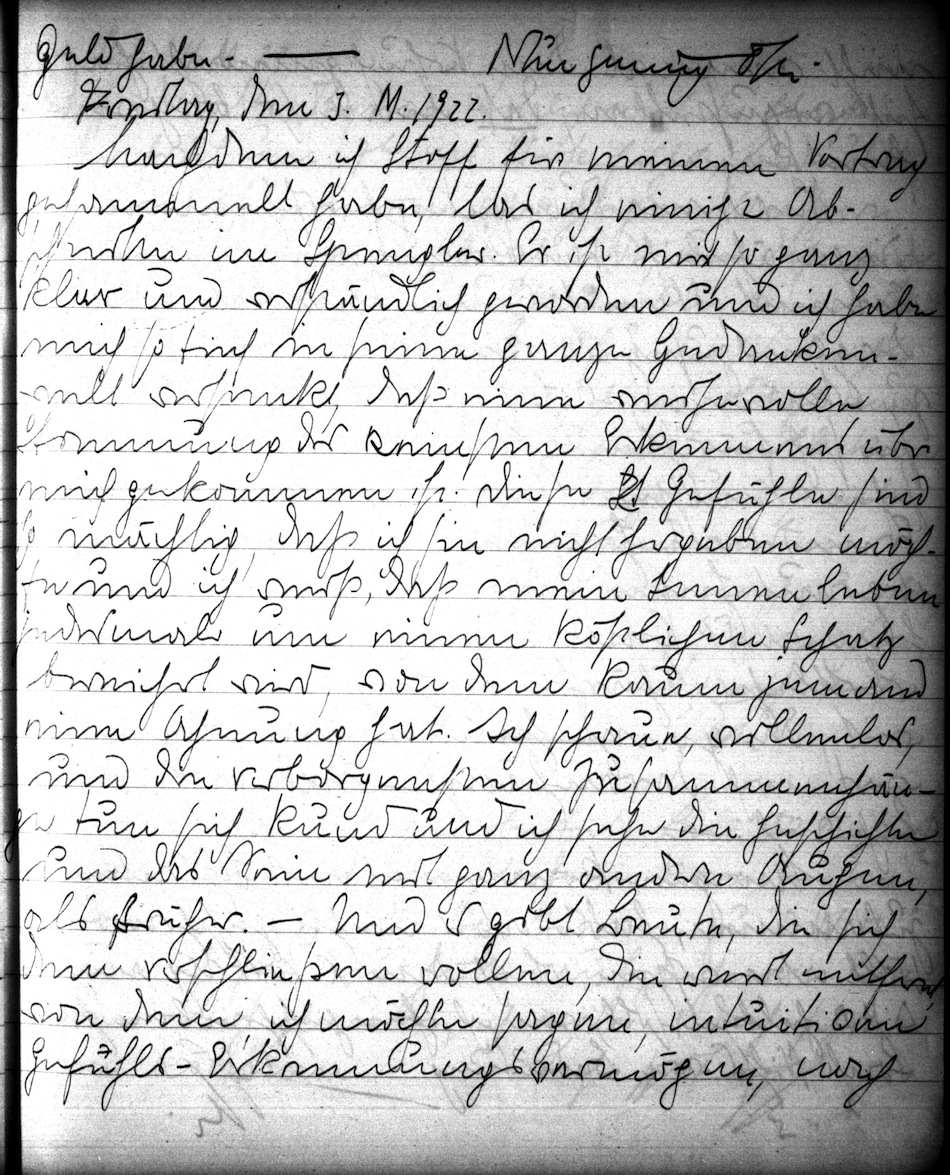 Geld habe. — Nürnberg
Dienstag, den 3. M. 1922.
Nachdem ich Stoff für meinen Vortrag
gesammelt habe, las ich einige Ab-
schnitte im Spengler. Er ist mir so ganz
klar und verständlich geworden und ich habe
mich so tief in seine ganze Gedanken-
welt versenkt, daß eine weihevolle
Stimmung des reinsten Erkennens über
mich gekommen ist. Diese Gefühle sind
so mächtig, daß ich sie nicht hergeben möch-
te und ich weiß, daß mein Innenleben
jedesmal um einen köstlichen Schatz
bereichert wird, von dem kaum jemand
eine Ahnung hat. Ich schaue, willenlos,
und die verborgensten Zusammenhän-
ge tun sich kund und ich sehe die Geschichte
und das Sein mit ganz andern Augen,
als früher. — Und es gibt Leute, die sich
dem verschließen wollen, die weit entfernt
von dem, ich möchte sagen, intuitiven
Gefühls-Erkennungsvermögen, noch